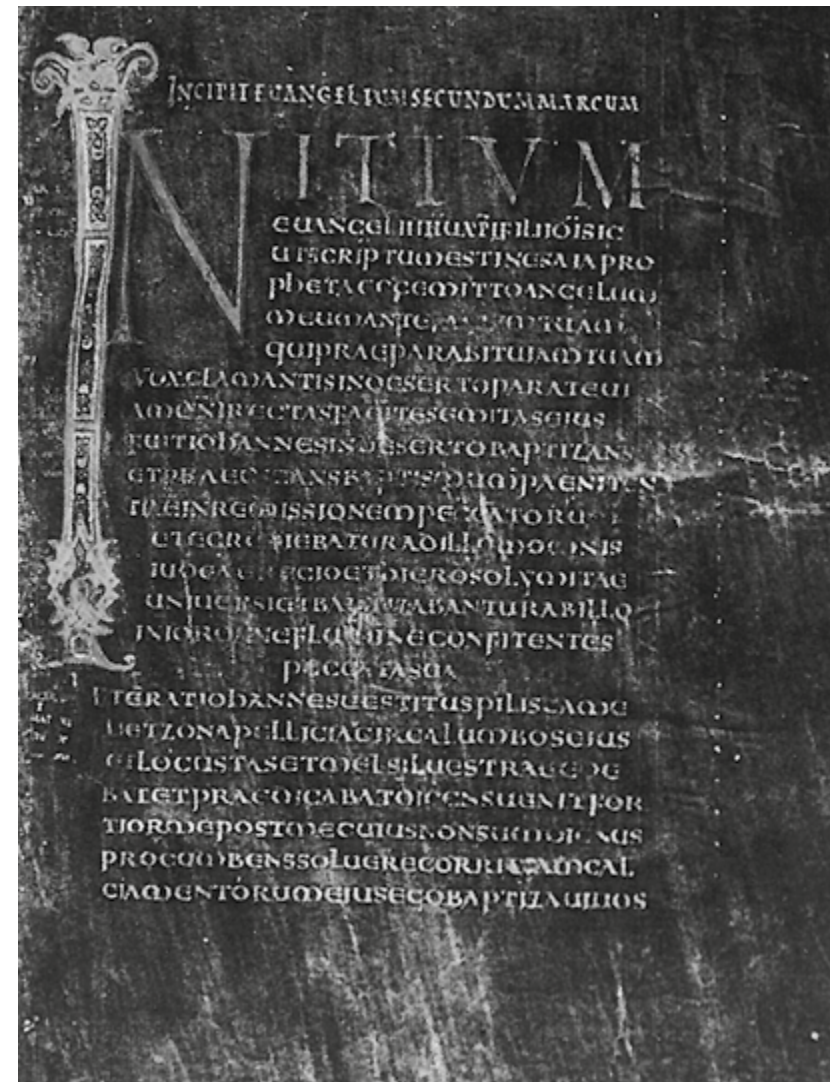 INCIPIT EUANGELIUM SECUNDUM MARCUM
INITIUM
EUANGELII IHU XPI FILII DI SIC
UT SCRIPTUM EST IN ESAIA PRO
PHETA ECCE MITTO ANGELUM
MEUM ANTE TUAM
QUI PRAEPARABIT UIAM TUAM
UOX CLAMANTIS IN DESERTO PARATE UI
AM DNI RECTAS FACITE SEMITAS EIUS
FUIT IOHANNES IN DESERTO BAPTIZANS
ET PRAEDICANS BAPTISMUM PAENITEN
TIAE IN REMISSIONEM PECCATORUM
ET EGREDIEBATUR AD ILLUM OMNIS
IUDEAE REGIO ET HIEROSOLYMITAE
UNIUERSI ET BAPTIZABANTUR AB ILLO
IN IORDANE FLUMINE CONFITENTES
PECCATA SUA
ET ERAT IOHANNES UESTITUS PILIS CAME
LI ET ZONA PELLICIA CIRCA LUMBOS EIUS
ET LOCUSTAS ET MEL SILUESTRAE EDE
BAT ET PRAEDICABAT DICENS UENIT FOR
TIOR ME POST ME CUIUS NON SUM DIGNUS
PROCUMBENS SOLUERE CORRIGIAM CAL
CIAMENTORUM EIUS EGO BAPTIZAUI UOS